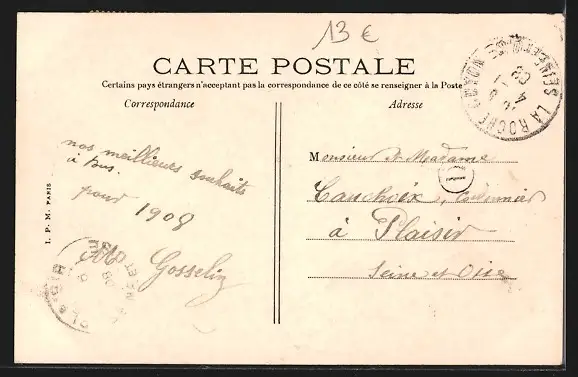 13 €
CARTE POSTALE
Certains pays étrangers n'acceptant pas la correspondance de ce côté se renseigner à la Poste
Correspondance
Adresse
LA ROCHE
SEINE
4
08
nos meilleurs souhaits
à tous.
pour 1908
Gosselin
Monsieur & Madame
Cauchoix, Cordonnier
à Plaisir
Seine et Oise
D
I. P. M. PARIS